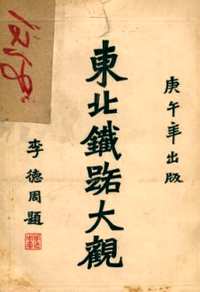 庚午年出版
東北鐵路大觀
李德周題